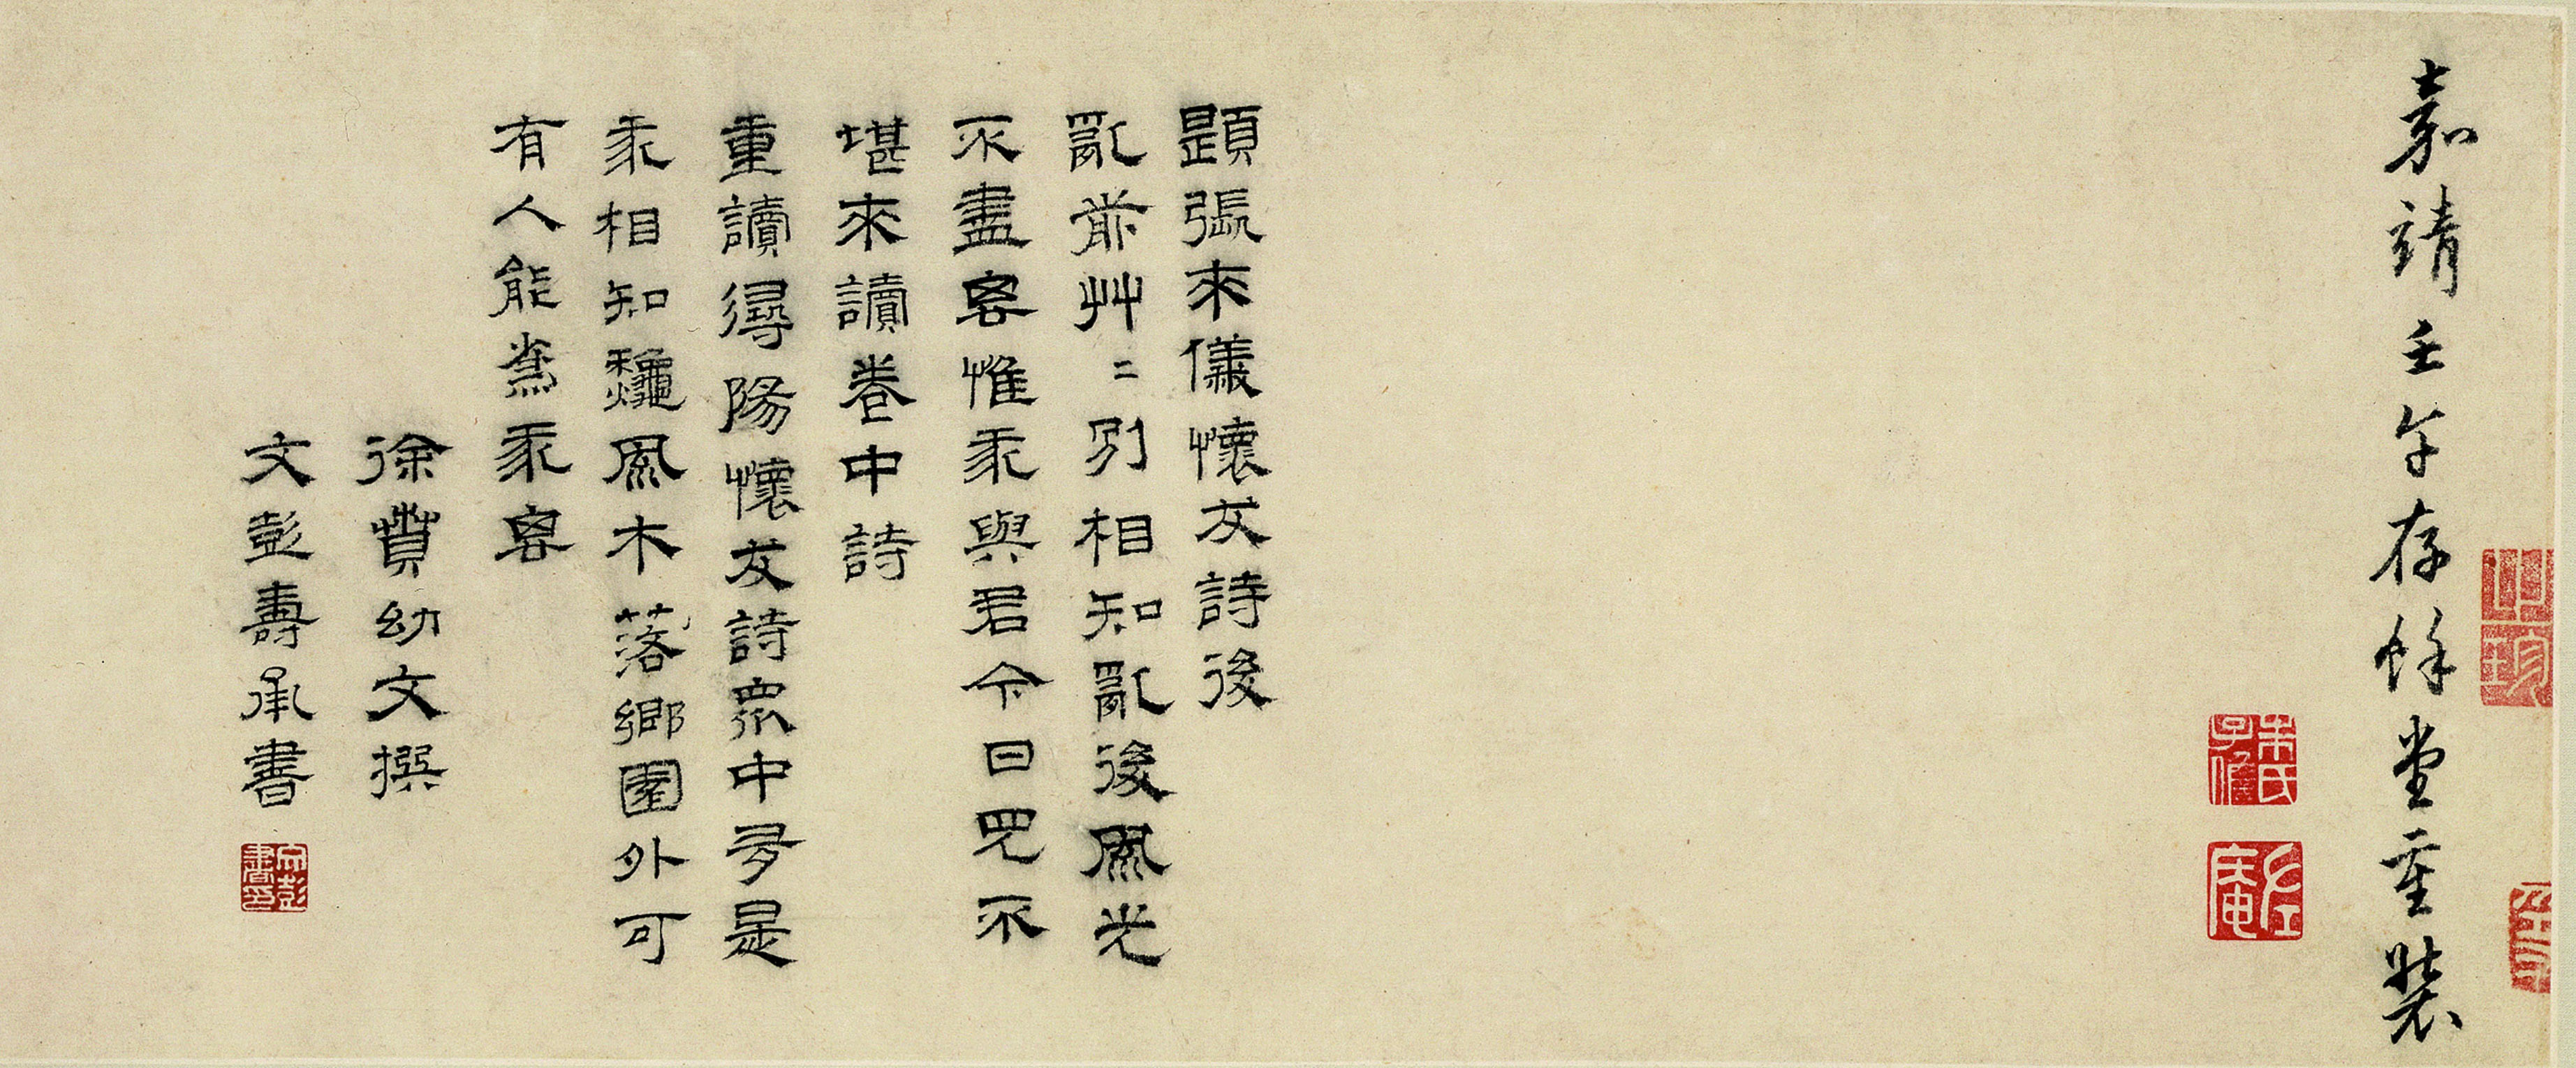 嘉靖壬午存餘堂重裝
朱氏子儋
左庵
題張來儀懷友詩後
亂前艸=別相知亂後風光
不盡惟我與君今日見不
堪來讀卷中詩
重讀尋陽懷友詩眾中多是
我相知龝風木落鄉園外可
有人能無我
徐賁幼文撰
文彭壽承書
文彭書印